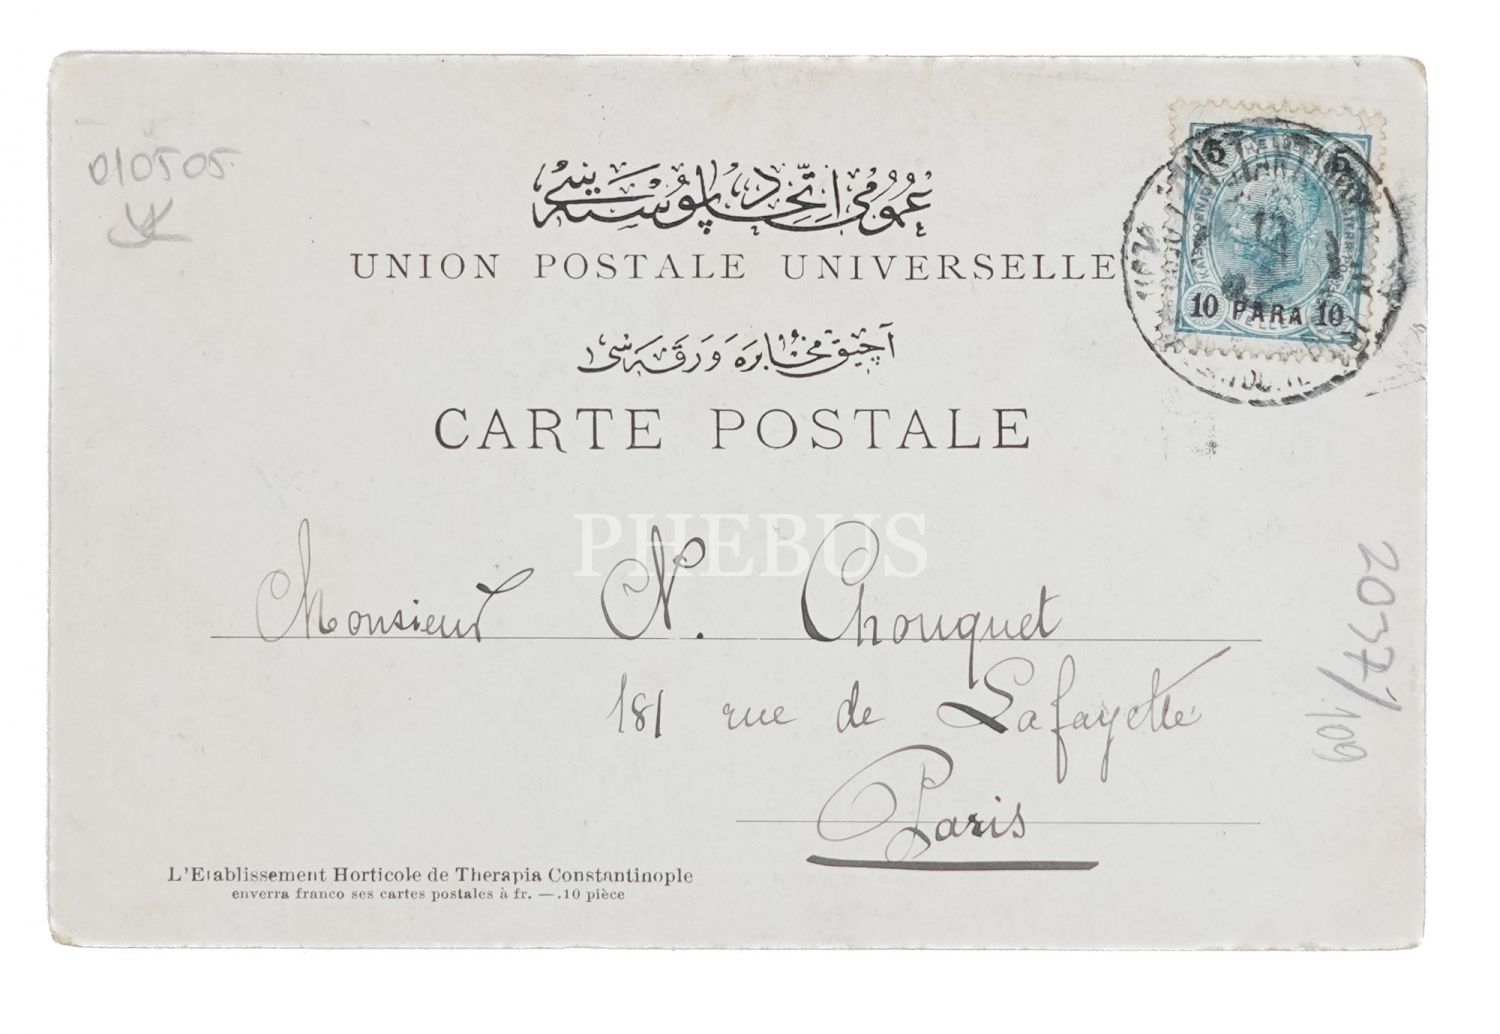 010505
عمومی اتحاد پوسته سی
UNION POSTALE UNIVERSELLE
آچیق مخابره ورقه سی
CARTE POSTALE
5 5
10 PARA 10
PHEBUS
Monsieur N. Chouquet
181 rue de Lafayette
Paris
2037/109
L'Etablissement Horticole de Therapia Constantinople
enverra franco ses cartes postales à fr. —.10 pièce